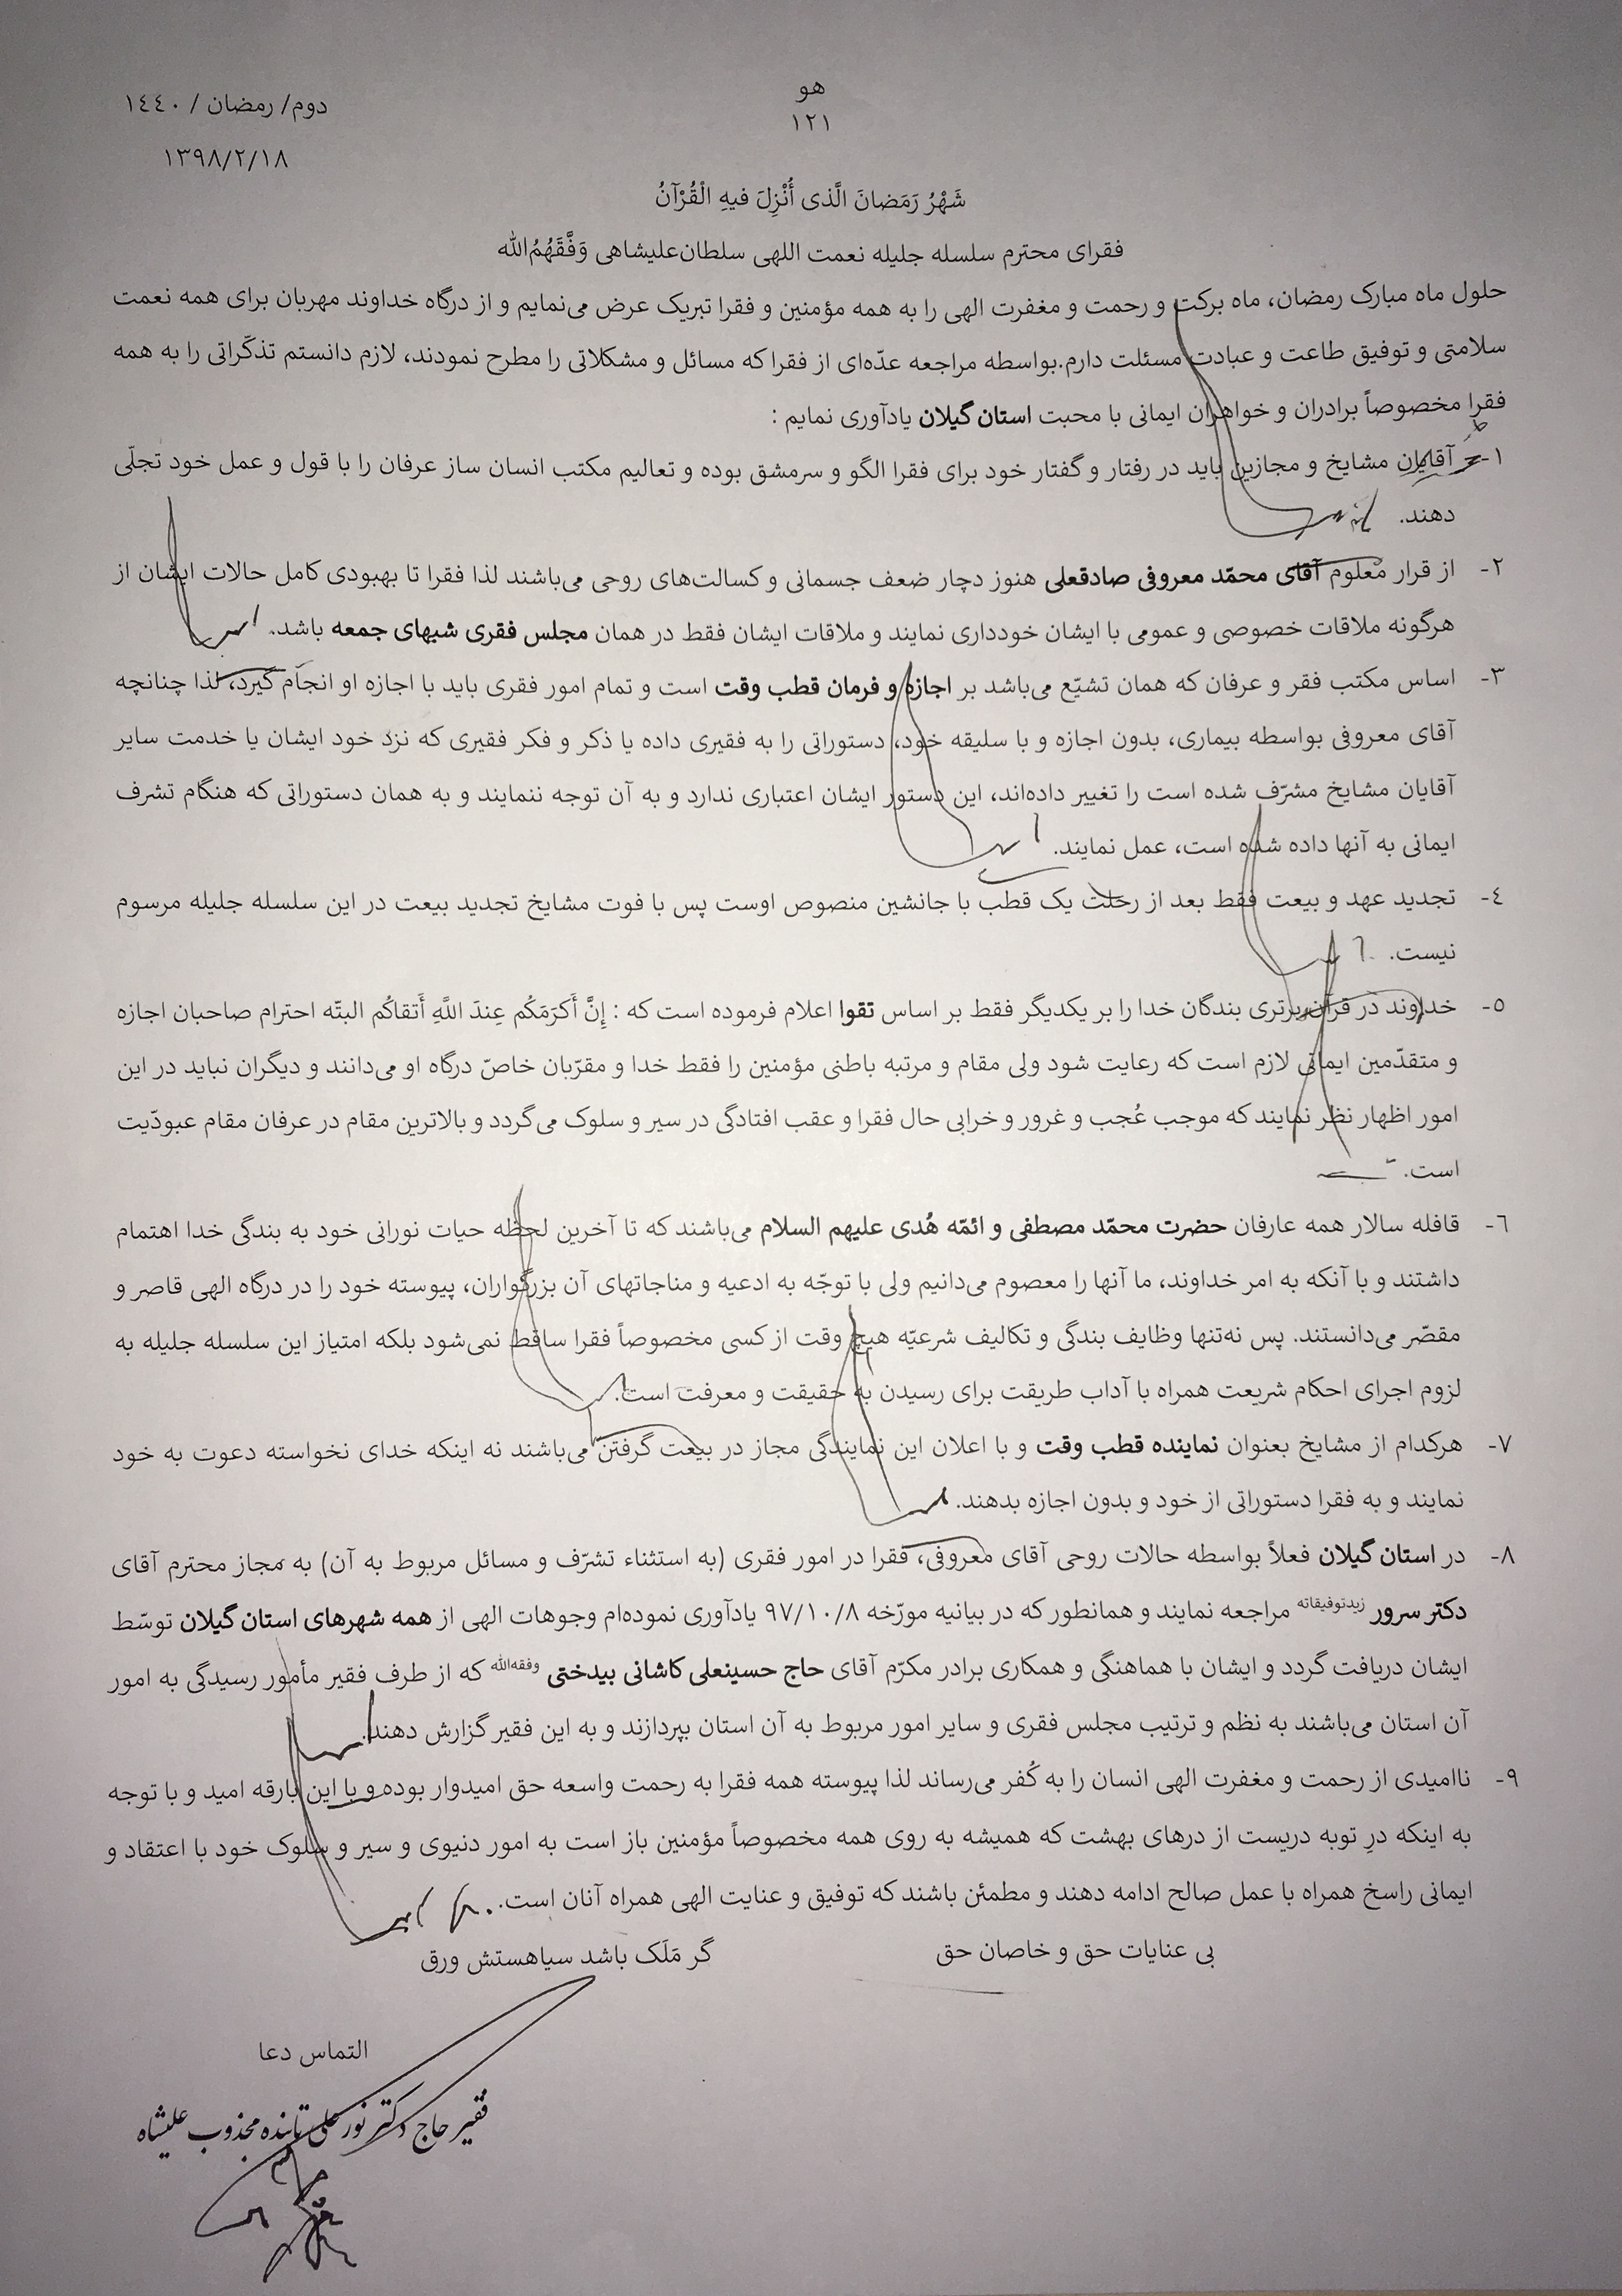 هو
۱۲۱
دوم/ رمضان / ۱٤٤۰
۱۳۹۸/۲/۱۸
شَهْرُ رَمَضانَ الَّذی أُنْزِلَ فیهِ الْقُرْآنُ
فقرای محترم سلسله جلیله نعمت اللهی سلطان‌علیشاهی وَفَّقَهُمُ‌الله
حلول ماه مبارک رمضان، ماه برکت و رحمت و مغفرت الهی را به همه مؤمنین و فقرا تبریک عرض می‌نمایم و از درگاه خداوند مهربان برای همه نعمت
سلامتی و توفیق طاعت و عبادت مسئلت دارم.بواسطه مراجعه عدّه‌ای از فقرا که مسائل و مشکلاتی را مطرح نمودند، لازم دانستم تذکّراتی را به همه
فقرا مخصوصاً برادران و خواهران ایمانی با محبت استان گیلان یادآوری نمایم :
۱- آقایان مشایخ و مجازین باید در رفتار و گفتار خود برای فقرا الگو و سرمشق بوده و تعالیم مکتب انسان ساز عرفان را با قول و عمل خود تجلّی
دهند.
۲- از قرار معلوم آقای محمّد معروفی صادقعلی هنوز دچار ضعف جسمانی و کسالت‌های روحی می‌باشند لذا فقرا تا بهبودی کامل حالات ایشان از
هرگونه ملاقات خصوصی و عمومی با ایشان خودداری نمایند و ملاقات ایشان فقط در همان مجلس فقری شبهای جمعه باشد.
۳- اساس مکتب فقر و عرفان که همان تشیّع می‌باشد بر اجازه و فرمان قطب وقت است و تمام امور فقری باید با اجازه او انجام گیرد، لذا چنانچه
آقای معروفی بواسطه بیماری، بدون اجازه و با سلیقه خود، دستوراتی را به فقیری داده یا ذکر و فکر فقیری که نزد خود ایشان یا خدمت سایر
آقایان مشایخ مشرّف شده است را تغییر داده‌اند، این دستور ایشان اعتباری ندارد و به آن توجه ننمایند و به همان دستوراتی که هنگام تشرف
ایمانی به آنها داده شده است، عمل نمایند.
٤- تجدید عهد و بیعت فقط بعد از رحلت یک قطب با جانشین منصوص اوست پس با فوت مشایخ تجدید بیعت در این سلسله جلیله مرسوم
نیست.
٥- خداوند در قرآن برتری بندگان خدا را بر یکدیگر فقط بر اساس تقوا اعلام فرموده است که : إِنَّ أَکرَمَکُم عِندَ اللَّهِ أَتقاکُم البتّه احترام صاحبان اجازه
و متقدّمین ایمانی لازم است که رعایت شود ولی مقام و مرتبه باطنی مؤمنین را فقط خدا و مقرّبان خاصّ درگاه او می‌دانند و دیگران نباید در این
امور اظهار نظر نمایند که موجب عُجب و غرور و خرابی حال فقرا و عقب افتادگی در سیر و سلوک می‌گردد و بالاترین مقام در عرفان مقام عبودّیت
است.
٦- قافله سالار همه عارفان حضرت محمّد مصطفی و ائمّه هُدی علیهم السلام می‌باشند که تا آخرین لحظه حیات نورانی خود به بندگی خدا اهتمام
داشتند و با آنکه به امر خداوند، ما آنها را معصوم می‌دانیم ولی با توجّه به ادعیه و مناجاتهای آن بزرگواران، پیوسته خود را در درگاه الهی قاصر و
مقصّر می‌دانستند. پس نه‌تنها وظایف بندگی و تکالیف شرعیّه هیچ وقت از کسی مخصوصاً فقرا ساقط نمی‌شود بلکه امتیاز این سلسله جلیله به
لزوم اجرای احکام شریعت همراه با آداب طریقت برای رسیدن به حقیقت و معرفت است.
۷- هرکدام از مشایخ بعنوان نماینده قطب وقت و با اعلان این نمایندگی مجاز در بیعت گرفتن می‌باشند نه اینکه خدای نخواسته دعوت به خود
نمایند و به فقرا دستوراتی از خود و بدون اجازه بدهند.
۸- در استان گیلان فعلاً بواسطه حالات روحی آقای معروفی، فقرا در امور فقری (به استثناء تشرّف و مسائل مربوط به آن) به مجاز محترم آقای
دکتر سرور زیدتوفیقاته مراجعه نمایند و همانطور که در بیانیه مورّخه ۹۷/۱۰/۸ یادآوری نموده‌ام وجوهات الهی از همه شهرهای استان گیلان توسّط
ایشان دریافت گردد و ایشان با هماهنگی و همکاری برادر مکرّم آقای حاج حسینعلی کاشانی بیدختی وفقه‌الله که از طرف فقیر مأمور رسیدگی به امور
آن استان می‌باشند به نظم و ترتیب مجلس فقری و سایر امور مربوط به آن استان بپردازند و به این فقیر گزارش دهند.
۹- ناامیدی از رحمت و مغفرت الهی انسان را به کُفر می‌رساند لذا پیوسته همه فقرا به رحمت واسعه حق امیدوار بوده و با این بارقه امید و با توجه
به اینکه درِ توبه دریست از درهای بهشت که همیشه به روی همه مخصوصاً مؤمنین باز است به امور دنیوی و سیر و سلوک خود با اعتقاد و
ایمانی راسخ همراه با عمل صالح ادامه دهند و مطمئن باشند که توفیق و عنایت الهی همراه آنان است.
بی عنایات حق و خاصان حق گر مَلَک باشد سیاهستش ورق
التماس دعا
فقیر حاج دکتر نورعلی تابنده مجذوب علیشاه